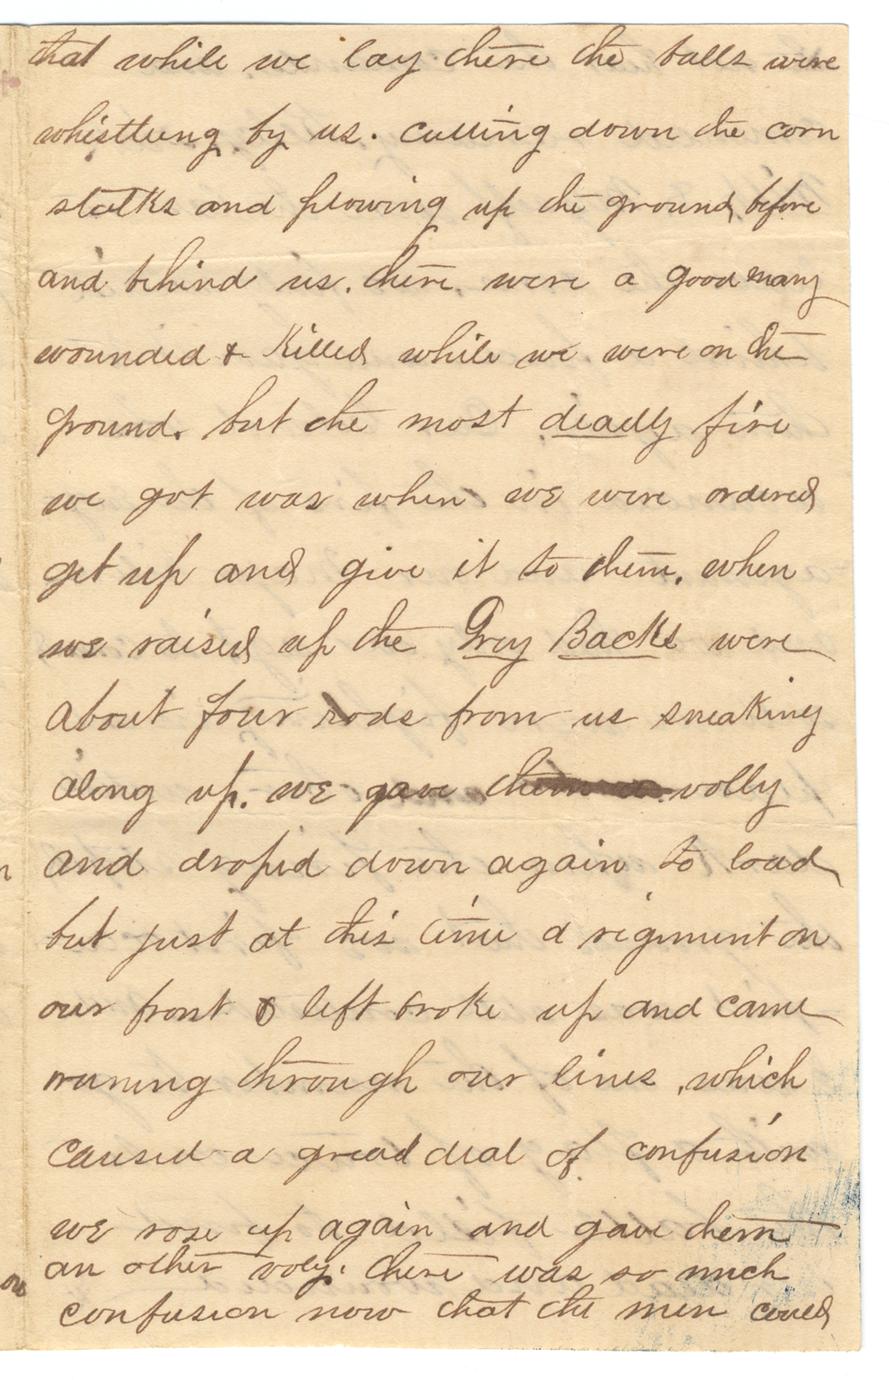 that while we lay there the balls were
whistleing by us. cutting down the corn
stalks and plowing up the ground before
and behind us. there were a good many
wounded & killed while we were on the
ground. but the most deadly fire
we got was when we were ordered
get up and give it to them. when
we raised up the Grey Backs were
about four rods from us sneaking
along up. we gave them a volly
and droped down again to load
but just at this time a rigiment on
our front & left broke up and came
runing through our lines, which
caused a gread deal of confusion
we rose up again and gave them
an other voly. there was so much
confusion now that the men could
on